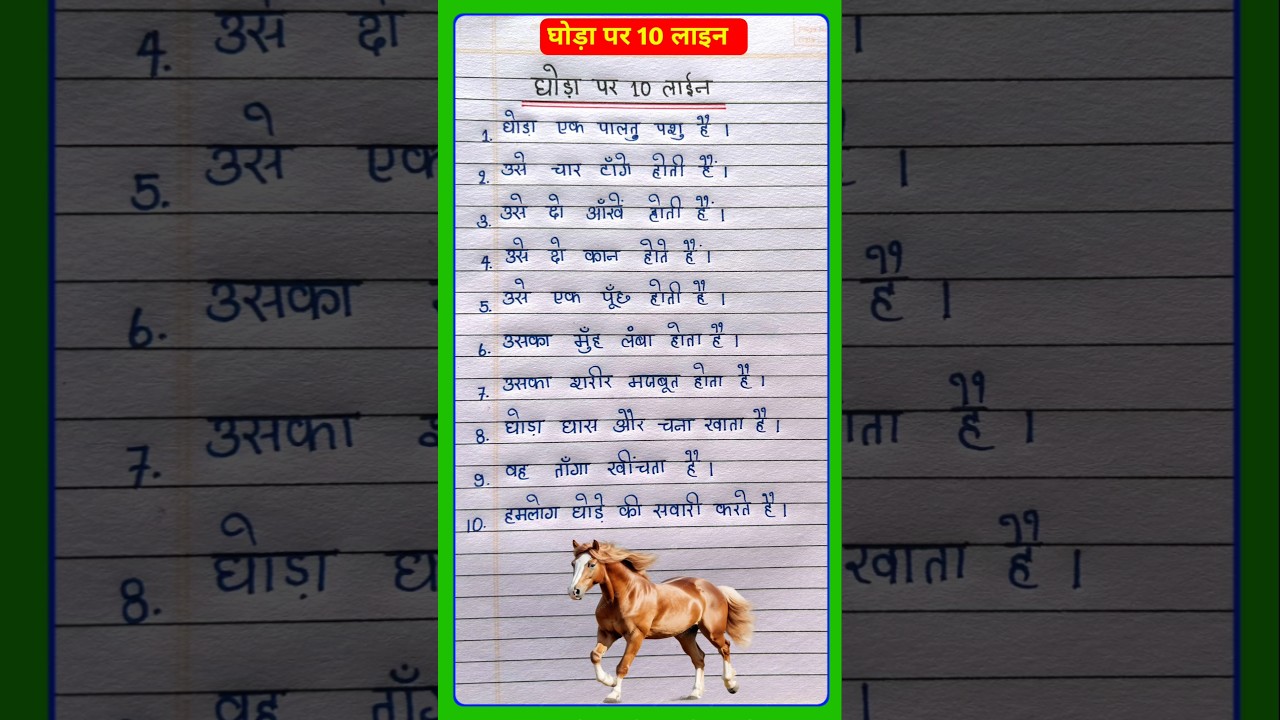 घोड़ा पर 10 लाइन
घोड़ा पर 10 लाईन
1. घोड़ा एक पालतु पशु है ।
2. उसे चार टाँगे होती हैं ।
3. उसे दो आँखें होती हैं ।
4. उसे दो कान होते हैं ।
5. उसे एक पूँछ होती है ।
6. उसका मुँह लंबा होता है ।
7. उसका शरीर मजबूत होता है ।
8. घोड़ा घास और चना खाता है ।
9. वह ताँगा खींचता है ।
10. हमलोग घोड़े की सवारी करते है ।
4. उसे दो
5. उसे एक
6. उसका
है ।
7. उसका
है ।
8. घोड़ा
खाता है ।
वह